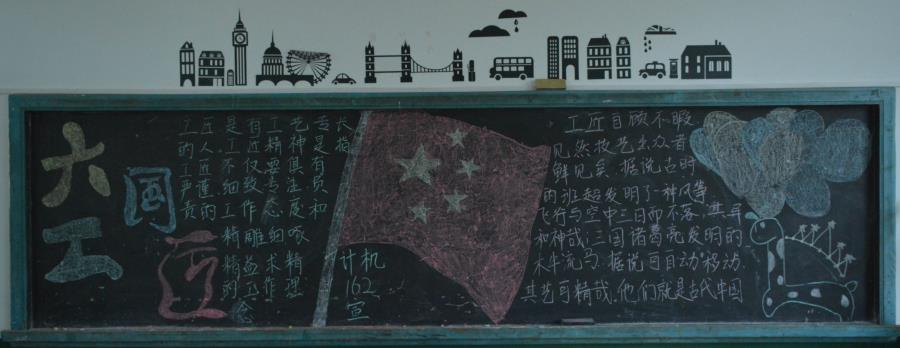 大国工匠
工匠是有工艺专长
的人。工匠精神是指
工匠不仅要俱有
严谨细致专生负
责的工作态度和
精雕细啄
精益求精
的工作理念
计机
162
宣
工匠自顾不暇
见然技艺出众者
鲜见矣。据说古时
的班超发明了神风筝
飞行与空中三日而不落,其异
和神哉;三国诸葛亮发明的
木牛流马,据说可自动移动,
其艺可精哉,他们就是古代中国